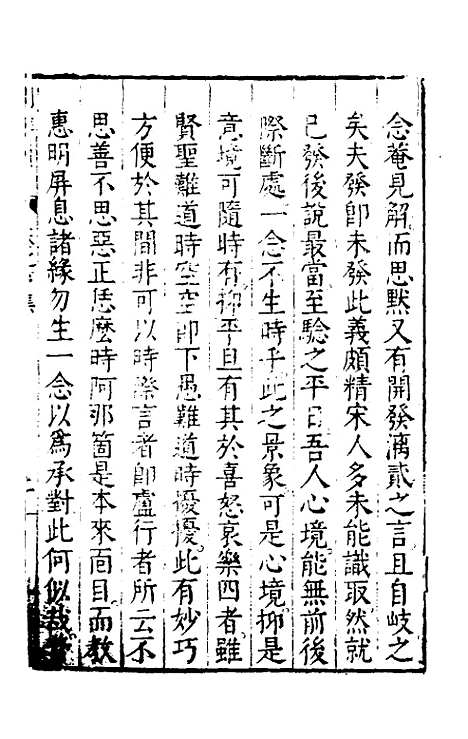 念菴見解而思默又有開發漓貳之言且自岐之
矣夫發卽未發此義頗精宋人多未能識取然就
已發後說最當至驗之平曰吾人心境能無前後
際斷處一念不生時乎此之景象可是心境抑是
意境可隨時有抑乎且有其於喜怒哀樂四者雖
賢聖難道時空空卽下愚難道時擾擾此有妙巧
方便於其間非可以時際言者卽盧行者所云不
思善不思惡正恁麼時阿那箇是本來面目而教
惠明屏息諸緣勿生一念以爲承對此何似哉